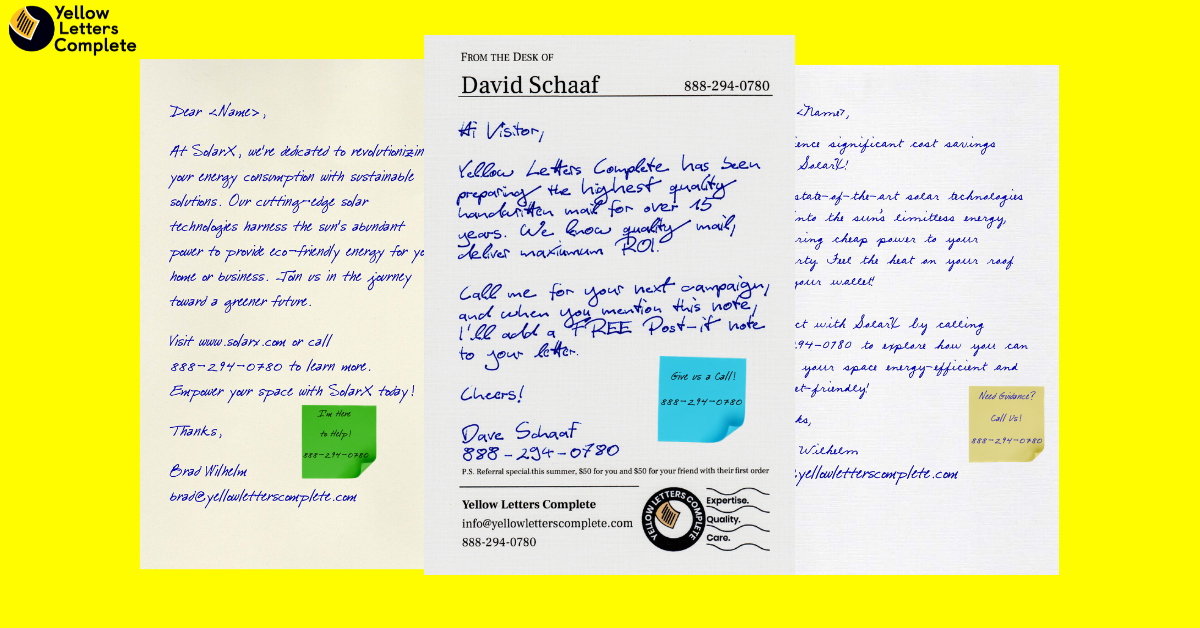 Yellow
Letters
Complete
Dear <Name>,
At SolarX, we're dedicated to revolutionizin
your energy consumption with sustainable
solutions. Our cutting-edge solar
technologies harness the sun's abundant
power to provide eco-friendly energy for yo
home or business. Join us in the journey
toward a greener future.
Visit www.solarx.com or call
888-294-0780 to learn more.
Empower your space with SolarX today!
Thanks,
Brad Wilhelm
brad@yellowletterscomplete.com
I'm Here
to Help!
888-294-0780
FROM THE DESK OF
David Schaaf 888-294-0780
Hi Visitor,
Yellow Letters Complete has been
preparing the highest quality
handwritten mail for over 15
years. We know quality mail,
deliver maxiumum ROI!
Call me for your next campaign,
and when you mention this note,
I'll add a FREE Post-it note
to your letter.
Cheers!
Dave Schaaf
888-294-0780
Give us a Call!
888-294-0780
P.S. Referral special this summer, $50 for you and $50 for your friend with their first order
Yellow Letters Complete
info@yellowletterscomplete.com
888-294-0780
YELLOW LETTERS COMPLETE
Expertise.
Quality.
Care.
<Name>,
ence significant cost savings
SolarX!
state-of-the-art solar technologies
into the sun's limitless energy,
ring cheap power to your
rty. Feel the heat on your roof
your wallet!
ct with SolarX by calling
294-0780 to explore how you can
your space energy-efficient and
et-friendly!
ks,
Wilhelm
@yellowletterscomplete.com
Need Guidance?
Call Us!
888-294-0780